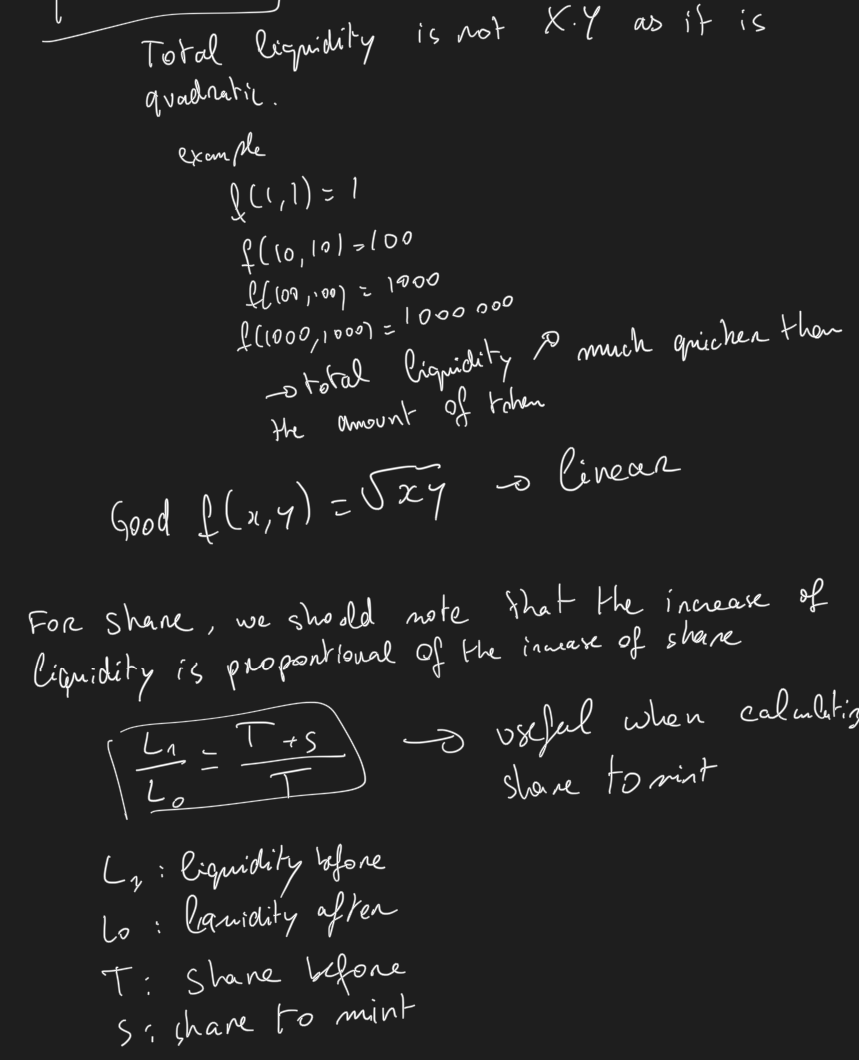 Total liquidity is not X.Y as it is
quadratic.
example
f(1,1) = 1
f(10,10) = 100
f(100,100) = 1000
f(1000,1000) = 1000 000
→ total liquidity ↗ much quicker than
the amount of token
Good f(x,y) = √xy → linear
For share, we should note that the increase of
liquidity is proportional of the increase of share
L₁/L₀ = T+S/T → useful when calculating
share to mint
L₁ : liquidity before
L₀ : liquidity after
T : share before
S : share to mint